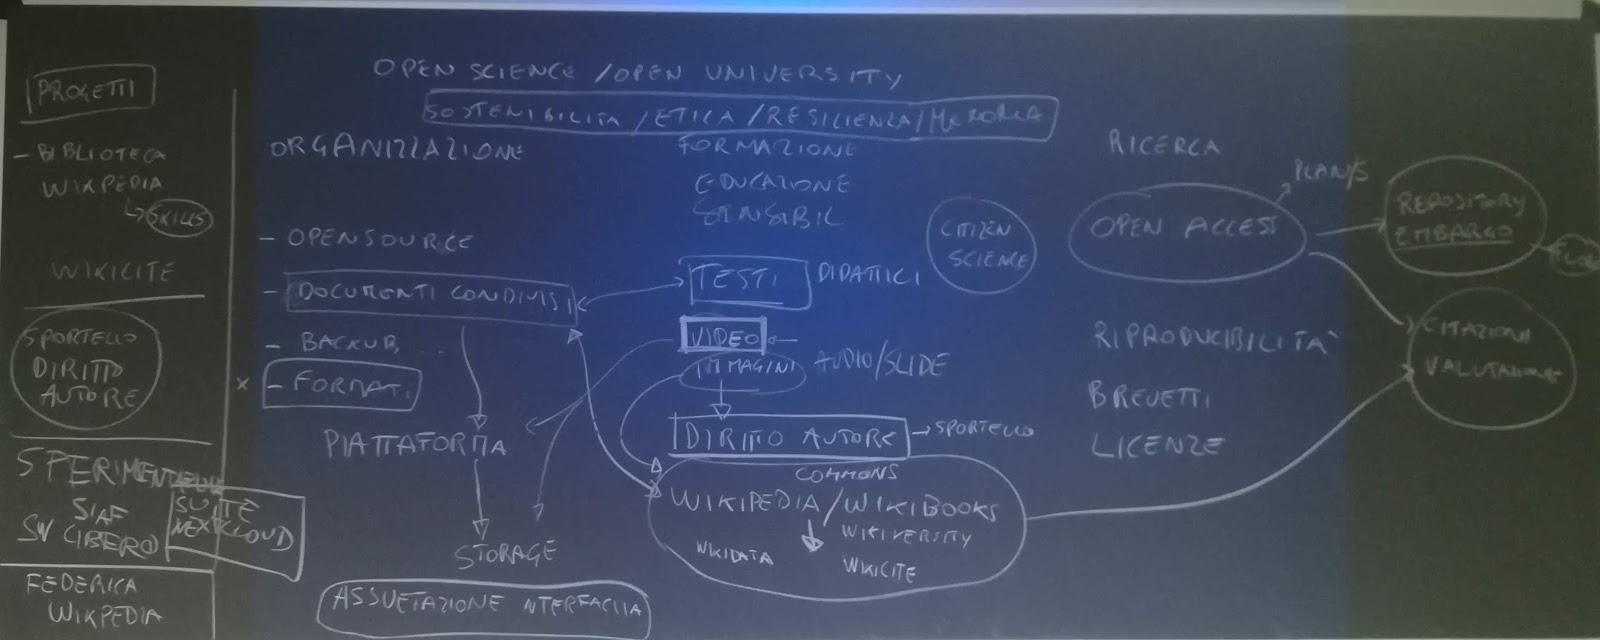 PROGETTI
- BIBLIOTECA
WIKIPEDIA
SKILLS
WIKICITE
SPORTELLO
DIRITTO
AUTORE
SIAF
SW LIBERO
SUITE
NEXTCLOUD
FEDERICA
WIKPEDIA
OPEN SCIENCE / OPEN UNIVERSITY
SOSTENIBILITA / ETICA / RESILIENZA / MEMORIA
ORGANIZZAZIONE
- OPENSOURCE
- DOCUMENTI CONDIVISI
- BACKUP
x - FORMATI
PIATTAFORMA
STORAGE
ASSUEFAZIONE NTERFACCIA
FORMAZIONE
EDUCAZIONE
SENSIBIL
TESTI DIDATTICI
VIDEO
IMMAGINI AUDIO/SLIDE
DIRITTO AUTORE → SPORTELLO
COMMONS
WIKIPEDIA / WIKIBOOKS
WIKIVERSITY
WIKIDATA
WIKICITE
CITIZEN
SCIENCE
RICERCA
PLAN/S
OPEN ACCESS
REPOSITORY
EMBARGO
RIPRODUCIBILITÀ
BREVETTI
LICENZE
CITAZIONI
VALUTAZIONE